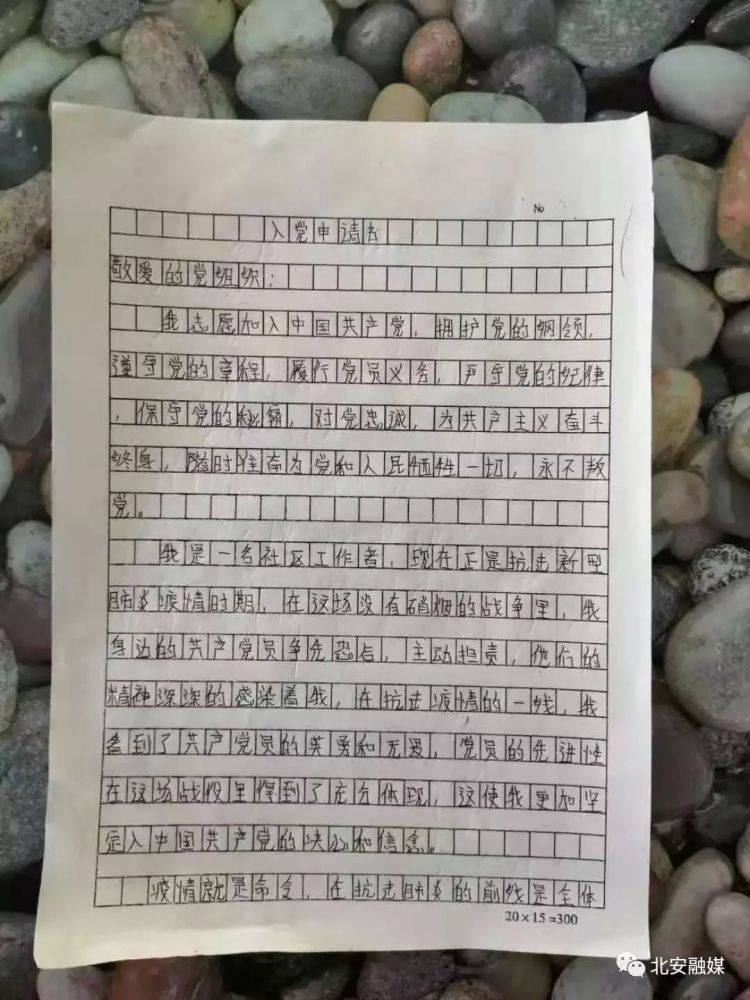 No
入党申请书
敬爱的党组织:
我志愿加入中国共产党,拥护党的纲领,
遵守党的章程,履行党员义务,严守党的纪律
,保守党的秘密,对党忠诚,为共产主义奋斗
终身,随时准备为党和人民牺牲一切,永不叛
党。
我是一名社区工作者,现在正是抗击新型
肺炎疫情时期,在这场没有硝烟的战争里,我
身边的共产党员争先恐后,主动担责,他们的
精神深深的感染着我,在抗击疫情的一线,我
看到了共产党员的英勇和无畏,党员的先进性
在这场战役里得到了充分体现,这使我更加坚
定入中国共产党的决心和信念。
疫情就是命令,在抗击肺炎的前线是全体
20×15=300
北安融媒